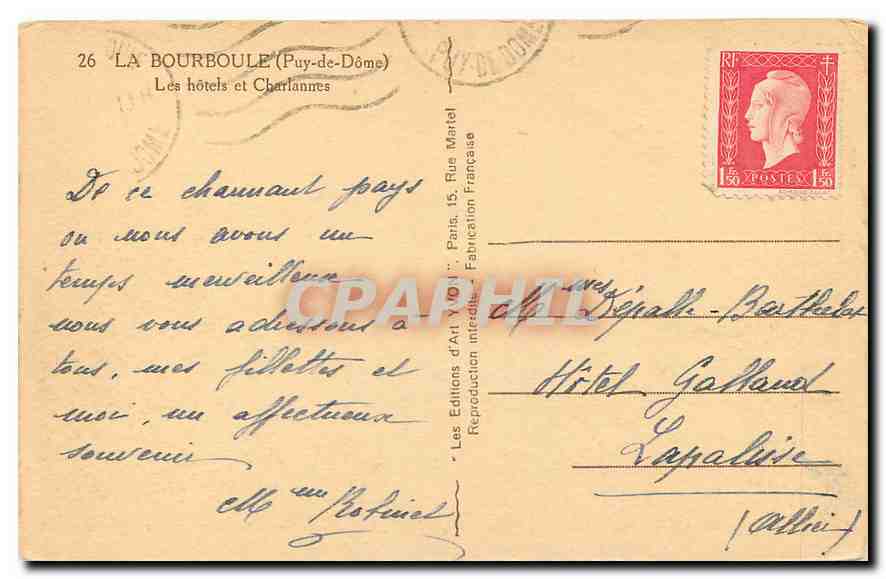 26 LA BOURBOULE (Puy-de-Dôme)
Les hôtels et Charlannes
PUY-DE DOME
DOME
RF
1 Fr. 50 POSTES 1 Fr. 50
De ce charmant pays
ou nous avons un
temps merveilleux
nous vous adressons à
tous, mes fillettes et
moi, un affectueux
souvenir
Mme Robinet
"Les Editions d'Art YVON", Paris, 15, Rue Martel
Reproduction interdite - Fabrication Française
CPAPHIL
Mmes Dépalle-Barthelat
Hôtel Galland
Lapalisse
(Allier)